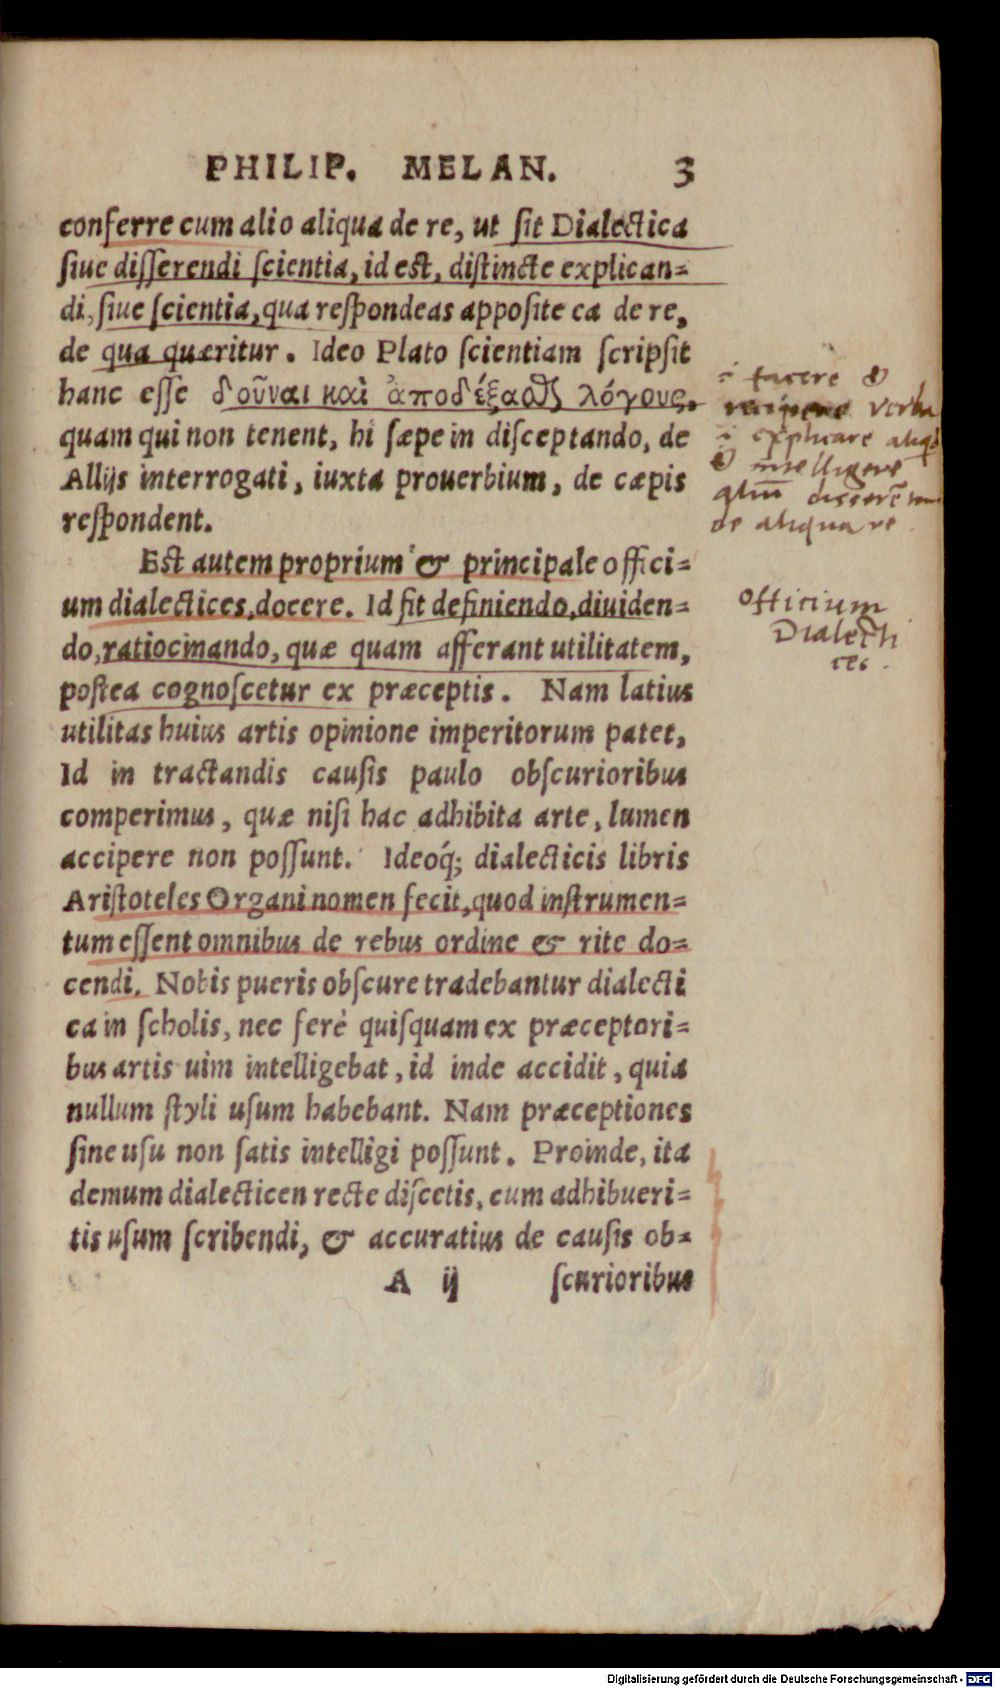 PHILIP. MELAN. 3
conferre cum alio aliqua de re, ut ſit Dialectica
ſiue diſſerendi ſcientia, id eſt, diſtincte explican=
di, ſiue ſcientia, qua reſpondeas appoſite ea de re,
de qua quæritur. Ideo Plato ſcientiam ſcripſit
hanc eſſe δοῦναι καὶ ἀποδέξαϑς λόγους.
quam qui non tenent, hi ſæpe in diſceptando, de
Allijs interrogati, iuxta prouerbium, de cæpis
reſpondent.
Eſt autem proprium & principale offici=
um dialectices, docere. Id fit definiendo, diuiden=
do, ratiocinando, quæ quam afferant utilitatem,
poſtea cognoſcetur ex præceptis. Nam latius
utilitas huius artis opinione imperitorum patet,
Id in tractandis cauſis paulo obſcurioribus
comperimus, quæ niſi hac adhibita arte, lumen
accipere non poſſunt. Ideoq́; dialecticis libris
Ariſtoteles Organi nomen fecit, quod inſtrumen=
tum eſſent omnibus de rebus ordine & rite do=
cendi. Nobis pueris obſcure tradebantur dialecti
ca in ſcholis, nec ferè quiſquam ex præceptori=
bus artis uim intelligebat, id inde accidit, quia
nullum ſtyli uſum habebant. Nam præceptiones
ſine uſu non ſatis intelligi poſſunt. Proinde, ita
demum dialecticen recte diſcetis, cum adhibueri=
tis uſum ſcribendi, & accuratius de cauſis ob=
A ij ſcurioribus
facere &
verba
explicare
& intelligere
de aliqua re.
Officium
Dialecti
ces.
Digitalisierung gefördert durch die Deutsche Forschungsgemeinschaft - DFG